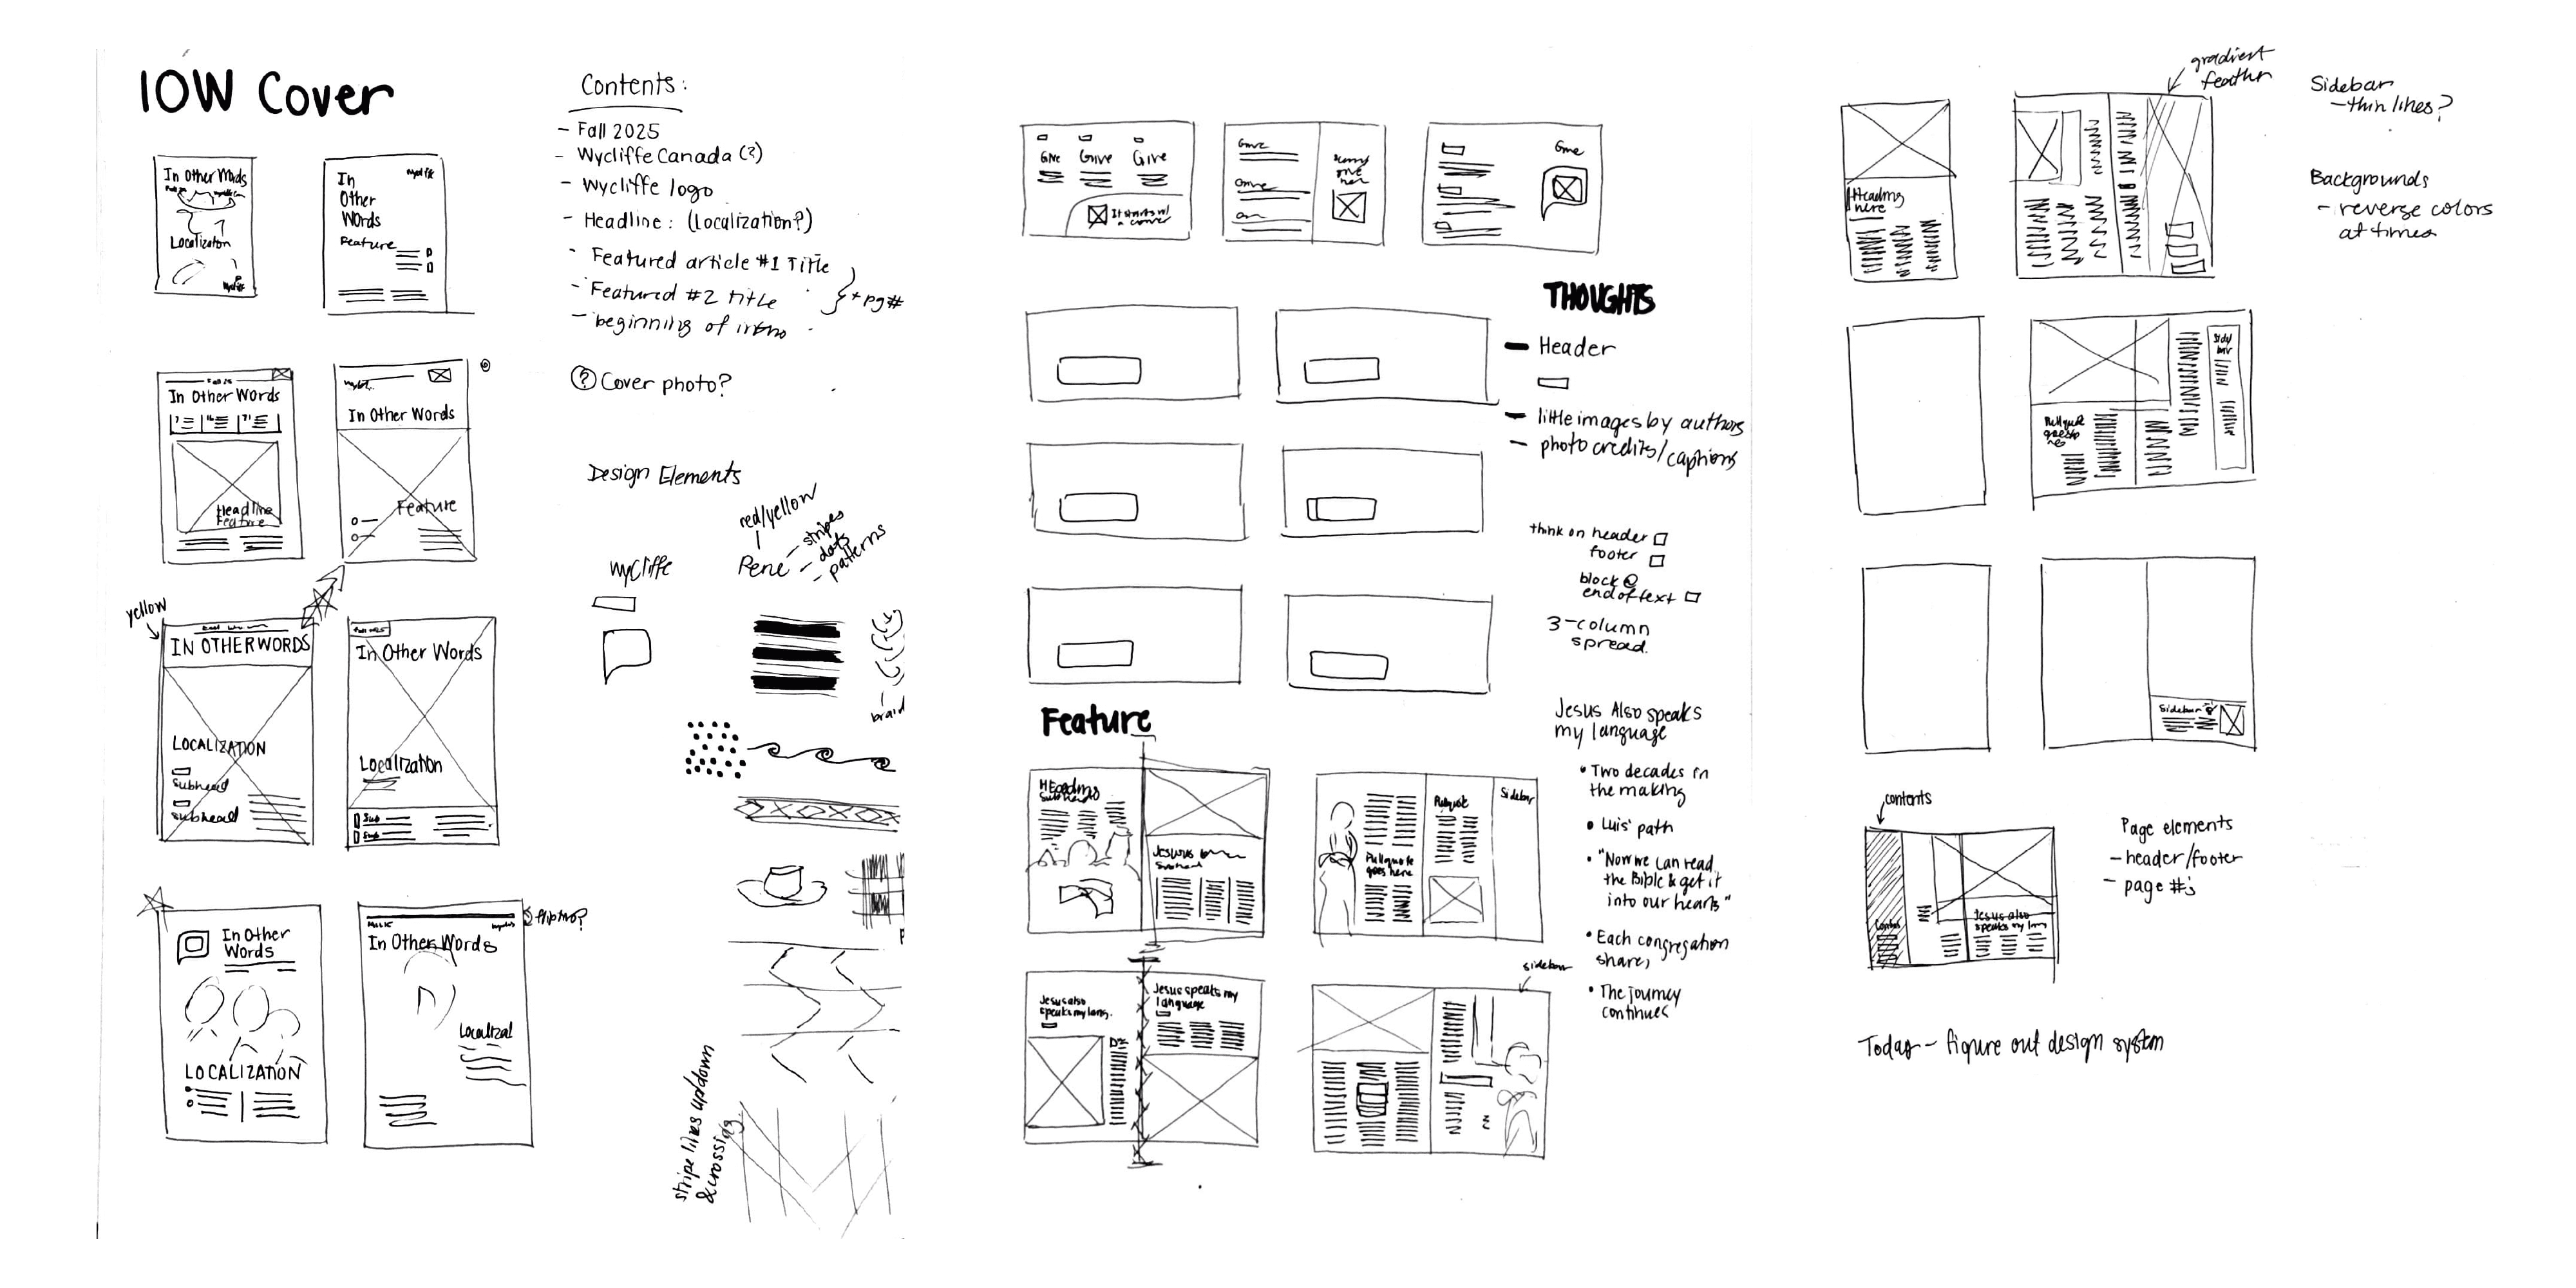 IOW Cover
In Other Words
Localization
In
Other
Words
Feature
In Other Words
Headline
Feature
In Other Words
Feature
yellow
IN OTHER WORDS
LOCALIZATION
Subhead
Subhead
In Other Words
Localization
Sub
Sub
In Other
Words
LOCALIZATION
flip two?
In Other Words
Localizat
Contents:
- Fall 2025
- Wycliffe Canada (?)
- Wycliffe logo
- Headline: (Localization?)
- Featured article #1 Title
- Featured #2 title
+ pg#
- beginning of intro
? Cover photo?
Design Elements
red/yellow
wycliffe
- stripes
- dots
- patterns
braid
stripe lines up/down
& crossing
Give Give Give
Give
Give
THOUGHTS
- Header
- little images by authors
- photo credits/captions
think on header
footer
block @
end of text
3-column
spread.
Feature
Heading
Subhead
Jesus
Pullquote
goes here
Pullquote
Sidebar
Jesus also
speaks my lang.
Jesus speaks my
language
sidebar
Jesus Also speaks
my language
• Two decades in
the making
• Luis' path
• "Now we can read
the Bible & get it
into our hearts"
• Each congregation
share,
• The journey
continues
gradient
feather
Heading
here
Sidebar
- thin lines?
Backgrounds
- reverse colors
at times
Pullquote
Side
bar
Sidebar
contents
Jesus also
speaks my lang
Page elements
- header/footer
- page #'s
Today - figure out design system